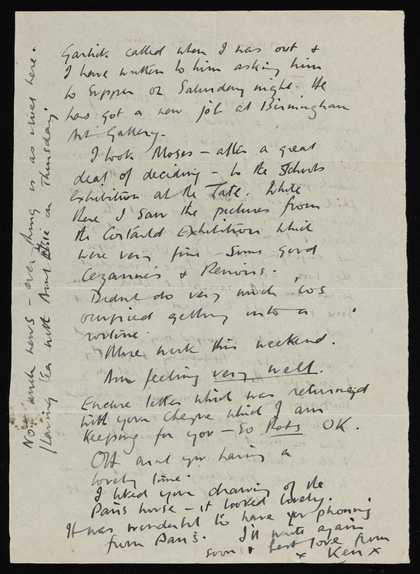 Garlick called when I was out &
I have written to him asking him
to supper on Saturday night. He
has got a new job at Birmingham
Art Gallery.
I took Moses – after a great
deal of deciding – to the Schools
Exhibition at the Tate. While
there I saw the pictures from
the Cortauld Exhibition which
were very fine – Some good
Cezannes & Renoirs.
Didn't do very much 'cos
occupied getting into a
routine.
More work this weekend.
Am feeling very well.
Enclose letter which was returned
with your cheque which I am
keeping for you – so that's OK.
are you having a
lovely time.
I liked your drawing of the
Paris horse – it looked lovely.
It was wonderful to have you phoning
from Paris. I'll write again
soon & best love from
x Ken x
Not much news – everything is as usual here.
Having Tea with Aunt Else on Thursday.